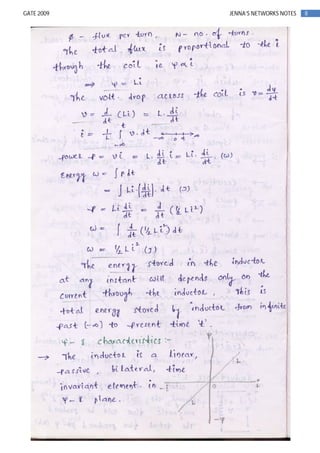 GATE 2009
JENNA'S NETWORKS NOTES 8
φ - flux per turn, N - no. of turns.
The total flux is proportional to the i
through the coil ie ψ ∝ i
⇒ ψ = Li
The volt. drop across the coil is v = dψ/dt
v = d/dt (Li) = L. di/dt
i = 1/L ∫ v.dt
power P = vi = L. di/dt i = Li. di/dt. (w)
Energy ω = ∫ p dt
= ∫ Li.{di/dt}. dt (J)
P = Li di/dt = d/dt (½ Li²)
ω = ∫ d/dt (½ Li²) dt
ω = ½ Li² (J)
The energy stored in the inductor
at any instant will depends only on the
current through the inductor. This is
total energy stored by inductor from infinite
past (-∞) to present time 't'.
ψ - I characteristics :-
→ The inductor is a linear,
passive, bilateral, time
invariant element. in
ψ - I plane.
ψ
L
0
L
-ψ